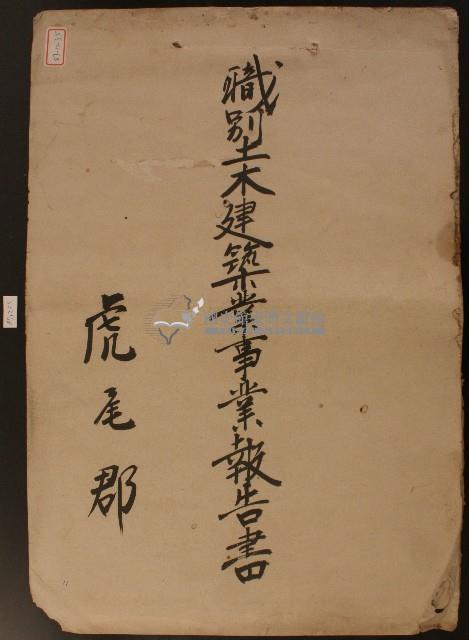 職別土木建築業事業報告書
虎尾郡